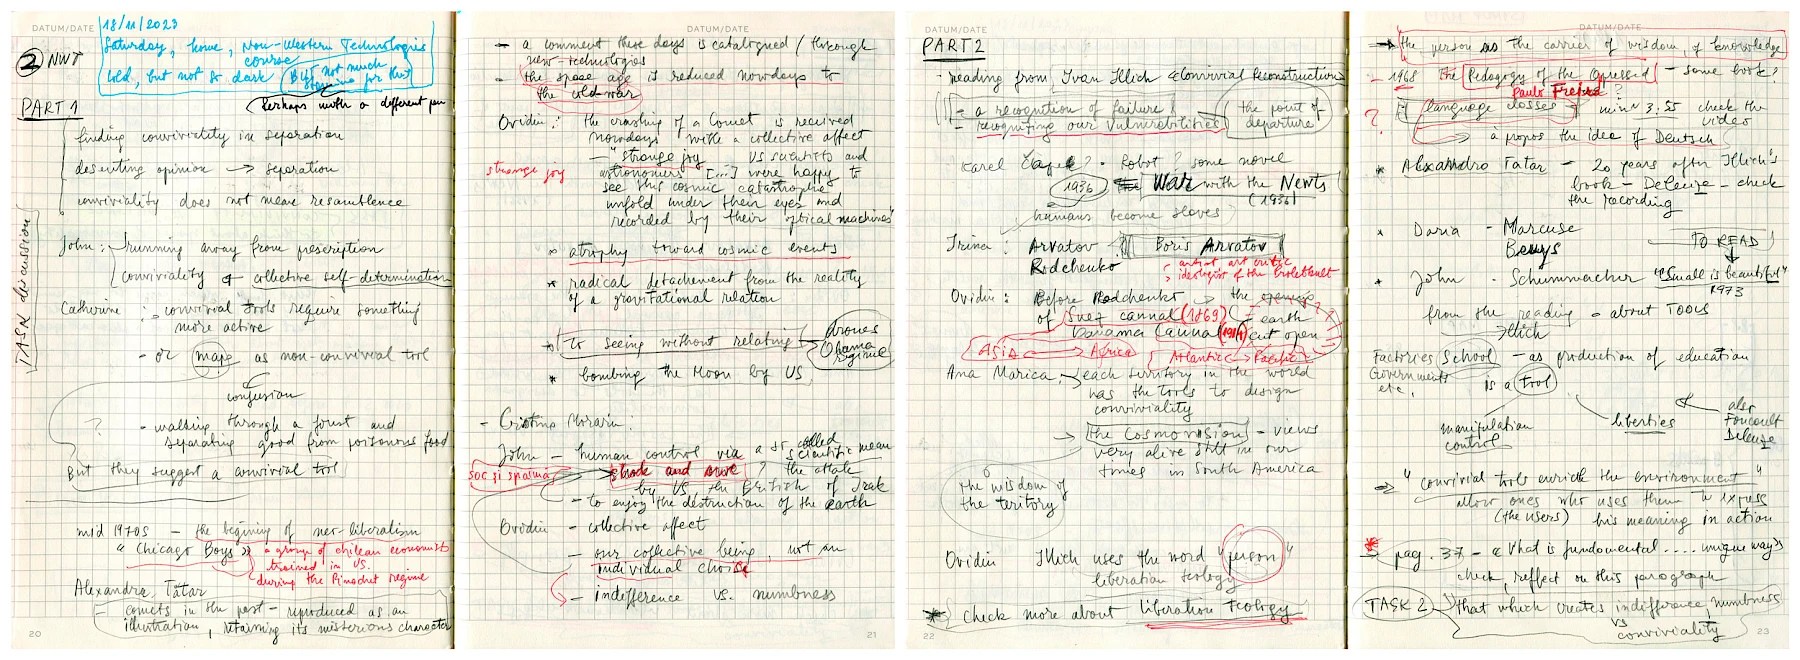 DATUM/DATE
18/11/2023
Saturday, home, Non-Western Technologies
course
Cold, but not so dark (But not much
time for this)
Perhaps with a different pen
2 NWT
PART 1
finding conviviality in separation
desenting opinion → separation
conviviality does not mean resamblence
TASK discussion
John: running away from prescription
conviviality & collective self-determination
Catherine: - convivial tools require something
more active
- or maps as non-convivial tool
confusion
? - walking through a forest and
separating good from poisonous food
But they suggest a convivial tool
mid 1970s - the begining of neo-liberalism
« Chicago Boys » a group of chilean economists
trained in US.
during the Pinochet regime
Alexandra Tatar
- comets in the past - reproduced as an
illustration, retaining its misterious character
20
DATUM/DATE
- a comment these days is catalogued / through
new-technologies
- the space age is reduced nowdays to
the cold-war
Ovidiu: the crashing of a Comet is received
nowdays with a collective affect
- "strange joy" VS scientists and
strange joy
astronomers [...] were happy to
see this cosmic catastrophe
unfold under their eyes and
recorded by their optical machines"
* atrophy toward cosmic events
* radical detachement from the reality
of a gravitational relation
* to seeing without relating
drones
Obama
regime
* bombing the Moon by US
- Cristina Morariu:
John - human control via a so called
scientific mean
soc si spaima
shock and awe ? the attak
by US, the British of Irak
- to enjoy the destruction of the earth
Ovidiu - collective affect
- our collective being, not an
individual choice
- indifference vs. numbness
21
DATUM/DATE
PART 2
- reading from Ivan Illich «Convivial Reconstruction
- a recognition of failure
- recognizing our vulnerabilities
the point of
departure
Karel Čapek? - Robot? some novel
1936 War with the Newts
(1936)
humans become slaves?
Irina: Arvatov Boris Arvatov
Rodchenko
- artist art critic
- ideologist of the Proletkult
Ovidiu: Before Rodchenko → the opening
of Suez cannal (1869)
Panama Cannal (1914)
earth
cut open
ASIA ↔ Africa
Atlantic ↔ Pacific
Ana Marica → each territory in the world
has the tools to design
conviviality
→ the cosmovision - views
very alive still in our
times in South America
the wisdom of
the teritory
Ovidiu Illich uses the word "person"
liberation teology
* Check more about liberation teology
22
DATUM/DATE
→ the person as the carrier of wisdom, of knowledge
- 1968 the Pedagogy of the Opressed - some book?
Paulo Freire?
? language losses min 3:55 check the
video
→ à propos the idea of Deutsch
* Alexandra Tatar - 20 years after Illich's
book - Deleuze - check
the recording
* Daria - Marcuse
Beuys
TO READ
* John - Schummacher "Small is beautiful"
1973
from the reading - about TOOLS
Illich
Factories School - as production of education
Governments
etc.
is a tool
manipulation
control
liberties
also
Foucault
Deleuze
→ "convivial tools enrich the environment"
allow ones who uses them to express
(the users) his meaning in action
* pag. 37 - « What is fundamental .... unique ways
check, reflect on this paragraph
TASK 2 → that which creates indifference numbness
vs
conviviality
23